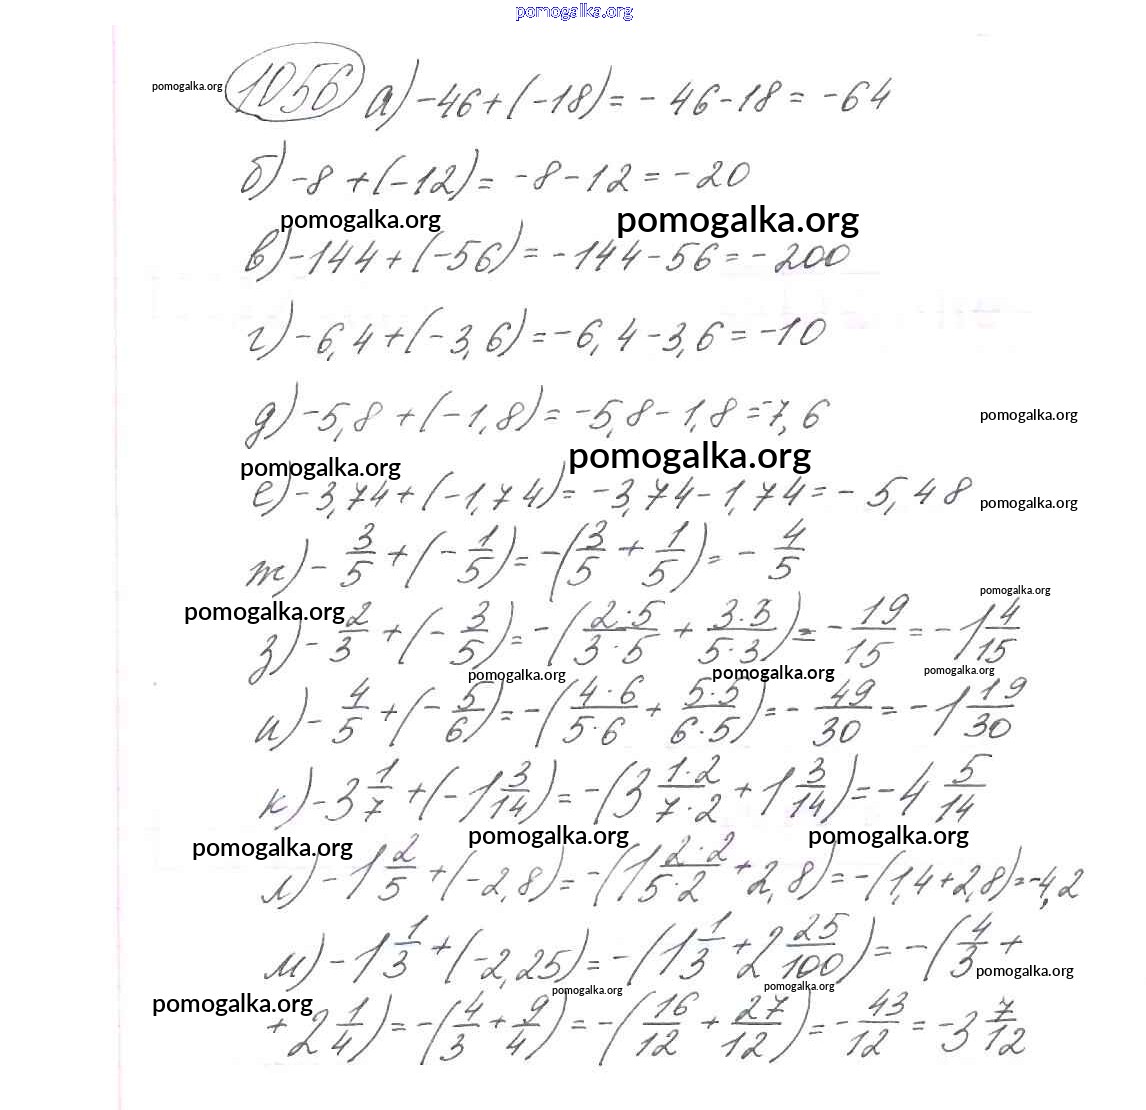 pomogalka.org
pomogalka.org
1056 а) -46 + (-18) = -46 - 18 = -64
б) -8 + (-12) = -8 - 12 = -20
pomogalka.org pomogalka.org
в) -144 + (-56) = -144 - 56 = -200
г) -6,4 + (-3,6) = -6,4 - 3,6 = -10
д) -5,8 + (-1,8) = -5,8 - 1,8 = -7,6
pomogalka.org
pomogalka.org pomogalka.org
е) -3,74 + (-1,74) = -3,74 - 1,74 = -5,48
pomogalka.org
ж) - 3/5 + (- 1/5) = -(3/5 + 1/5) = - 4/5
pomogalka.org pomogalka.org
з) - 2/3 + (- 3/5) = -(2·5/3·5 + 3·3/5·3) = - 19/15 = -1 4/15
pomogalka.org pomogalka.org pomogalka.org
и) - 4/5 + (- 5/6) = -(4·6/5·6 + 5·5/6·5) = - 49/30 = -1 19/30
к) -3 1/7 + (-1 3/14) = -(3 1·2/7·2 + 1 3/14) = -4 5/14
pomogalka.org pomogalka.org pomogalka.org
л) -1 2/5 + (-2,8) = -(1 2·2/5·2 + 2,8) = -(1,4 + 2,8) = -4,2
м) -1 1/3 + (-2,25) = -(1 1/3 + 2 25/100) = -(4/3 +
pomogalka.org
pomogalka.org pomogalka.org pomogalka.org
+ 2 1/4) = -(4/3 + 9/4) = -(16/12 + 27/12) = - 43/12 = -3 7/12